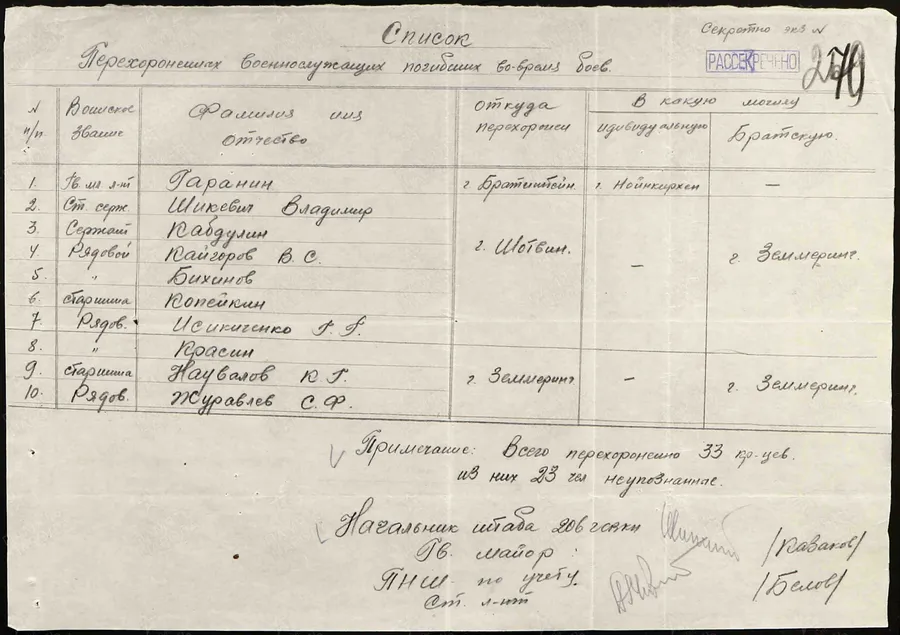 Секретно экз N
Список
РАССЕКРЕЧЕНО
Перехороненных военнослужащих погибших во-время боев.
N п/п. Воинское Звание Фамилия имя отчество откуда перехоронен В какую могилу
идивидуальную Братскую.
1. Гв. мл л-т Гаранин г. Братштейн г. Нойнкирхен —
2. Ст. серж. Шикевич Владимир
3. Сержант Кабдулин
4 Рядовой Кайгоров В. С. г. Шотвин. — г. Земмеринг.
5. " Бихинов
6. старшина Копейкин
7. Рядов. Исикиченко Г. Г.
8. " Красин
9. старшина Наувалов К Г. г. Земмеринг — г. Земмеринг.
10. Рядов. Журавлев С. Ф.
Примечание: Всего перехоронено 33 кр-цев.
из них 23 чел неупознанные.
Начальник штаба 206
Гв. майор: /Казаков/
ПНШ по учету.
Ст. л-нт /Белов/